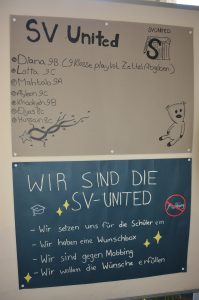 SV United
SVUNITED
Diana 9B (9Klasse playlist Zettel Abgeben)
Lotta 9C
9B
Ayleen 9C
9B
Elyas 8c
Hussain 8c
WIR SIND DIE
SV-UNITED
- Wir setzen uns für die Schüler ein
- Wir haben eine Wunschbox
- Wir sind gegen Mobbing
- Wir wollen die Wünsche erfüllen